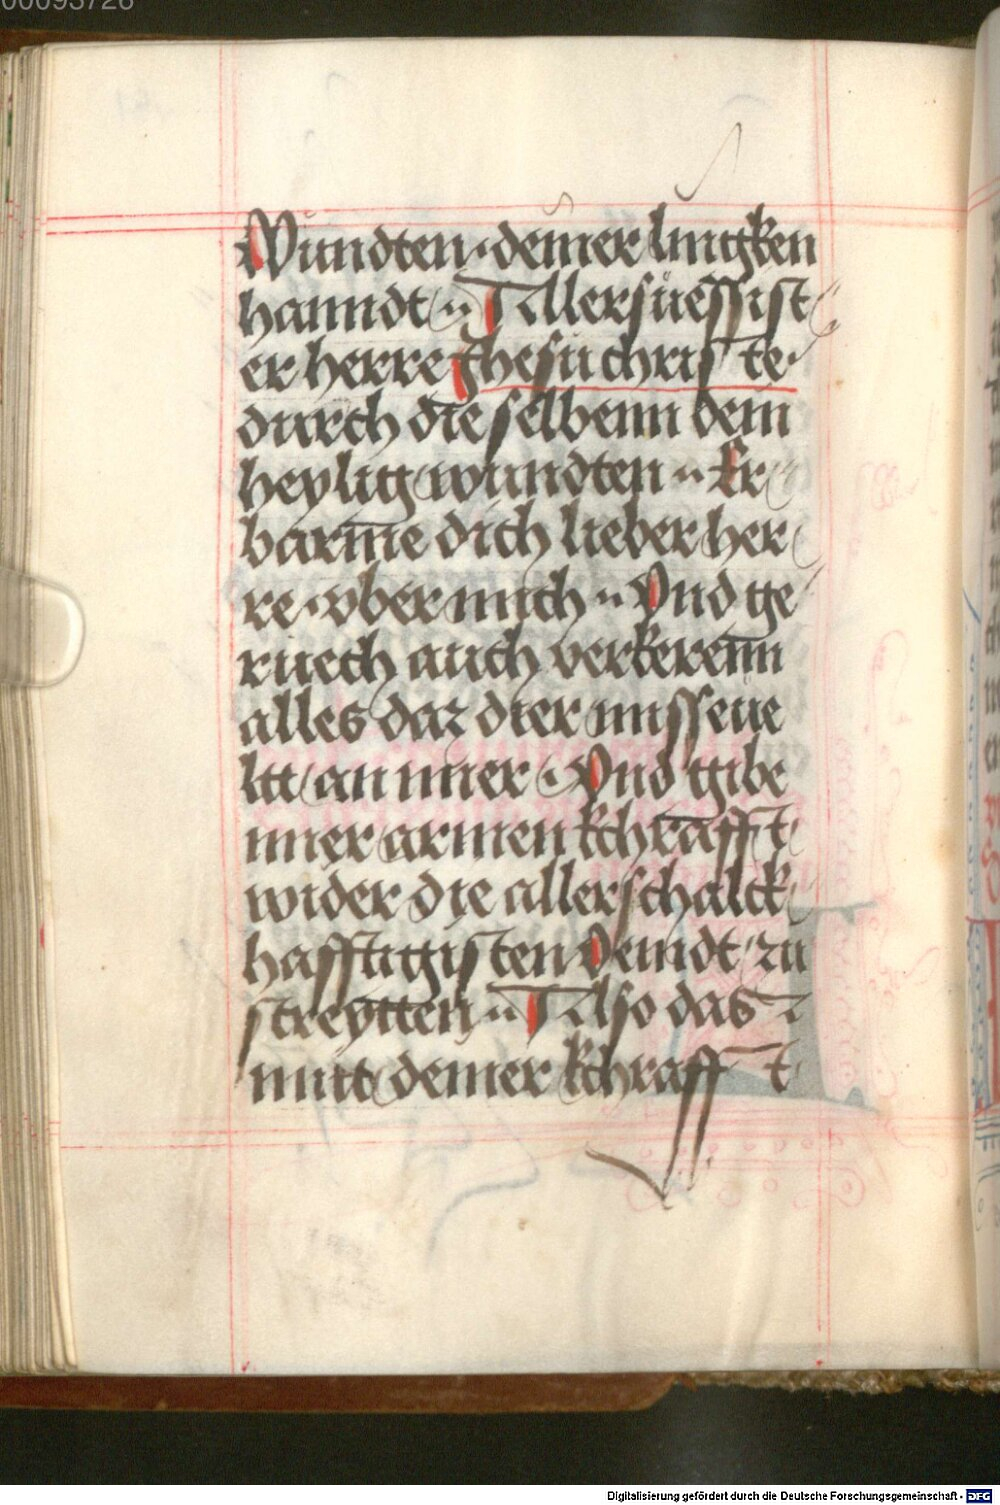 00093726
Wundten · deiner lingken
hanndt ·· Allersuessist
er herre Jhesu christe ·
durch die selbenn dein
heylig wundten ·· Er
barme dich lieber her
re · vber mich ·· Vnd ge
ruech auch verkerenn
alles daz dier misseue
lt an mier · Vnd gibe
mier armen kchrafft
wider die allerschalck
hafftigisten Veindt zu
streytten ·· Also das
mitt deiner kchrafft
Digitalisierung gefördert durch die Deutsche Forschungsgemeinschaft - DFG